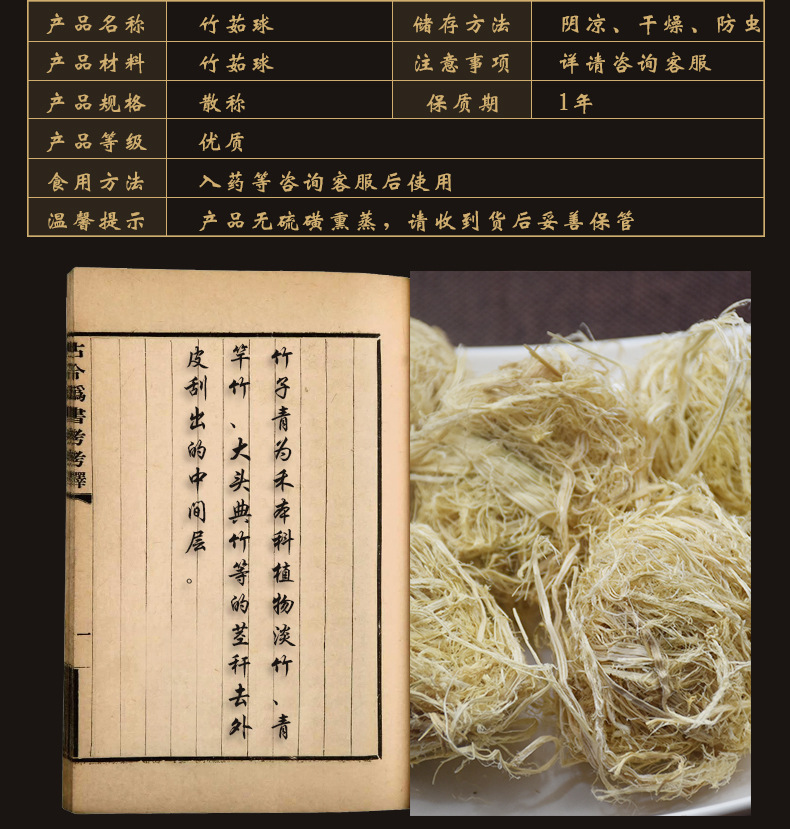 产品名称 竹茹球 储存方法 阴凉、干燥、防虫
产品材料 竹茹球 注意事项 详请咨询客服
产品规格 散称 保质期 1年
产品等级 优质
食用方法 入药等咨询客服后使用
温馨提示 产品无硫磺熏蒸，请收到货后妥善保管
竹子青为禾本科植物淡竹、青
竿竹、大头典竹等的茎秆去外
皮刮出的中间层。
古今伪書考考釋
一